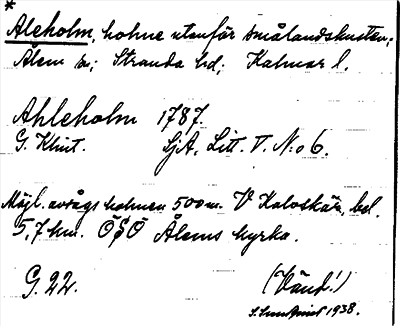 *
Aleholm, holme utanför Smålandskusten;
Ålem sn; Stranda hd; Kalmar l.
Ahleholm 1787.
G. Klint. SjA, Litt. V. No 6.
Möjl. avsågs holmen 500 m. V Kalvskär, bel.
5,7 km. ÖSÖ Ålems kyrka.
G. 22. (Vänd!)
S. Lundqvist 1938.